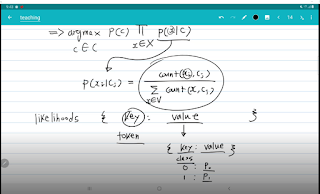 teaching
⇒ argmax P(c) ∏ P(x|c)
c∈C x∈X
P(xᵢ|cⱼ) = count(xᵢ, cⱼ)
∑ count(x, cⱼ)
x∈V
likelihoods { key : value }
token
{ key : value }
class
0 : P₀
1 : P₁